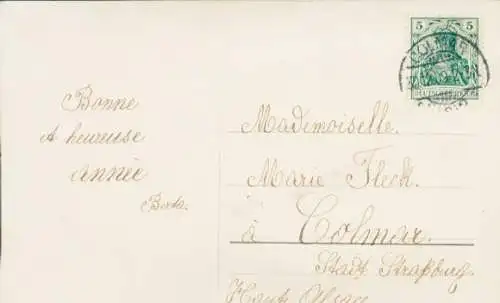 Bonne
& heureuse
année
Berta.
Mademoiselle.
Marie Fleck.
à Colmar.
Stadt Straßburg
Haute Alsace
5 5
COLMAR
DEUTSCHES REICH